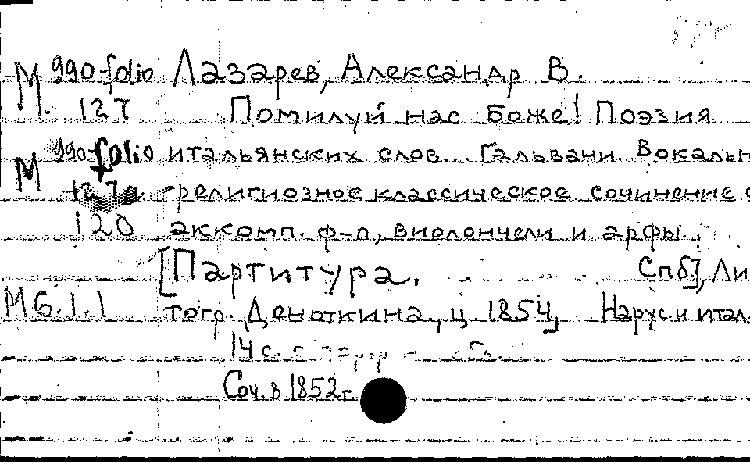 М 990-folio Лазарев, Александр В.
127 Помилуй нас Боже! Поэзия
М 990-folio итальянских слов... Гальвани. Вокальн
127а религиозное классическое сочинение с
120 аккомп. ф-п, виолончели и арфы.
[Партитура. Спб], Ли
М G.1.1 тогр. Деноткина, ц. 1854. На рус. и итал.
14 с.
Соч. в 1852 г.